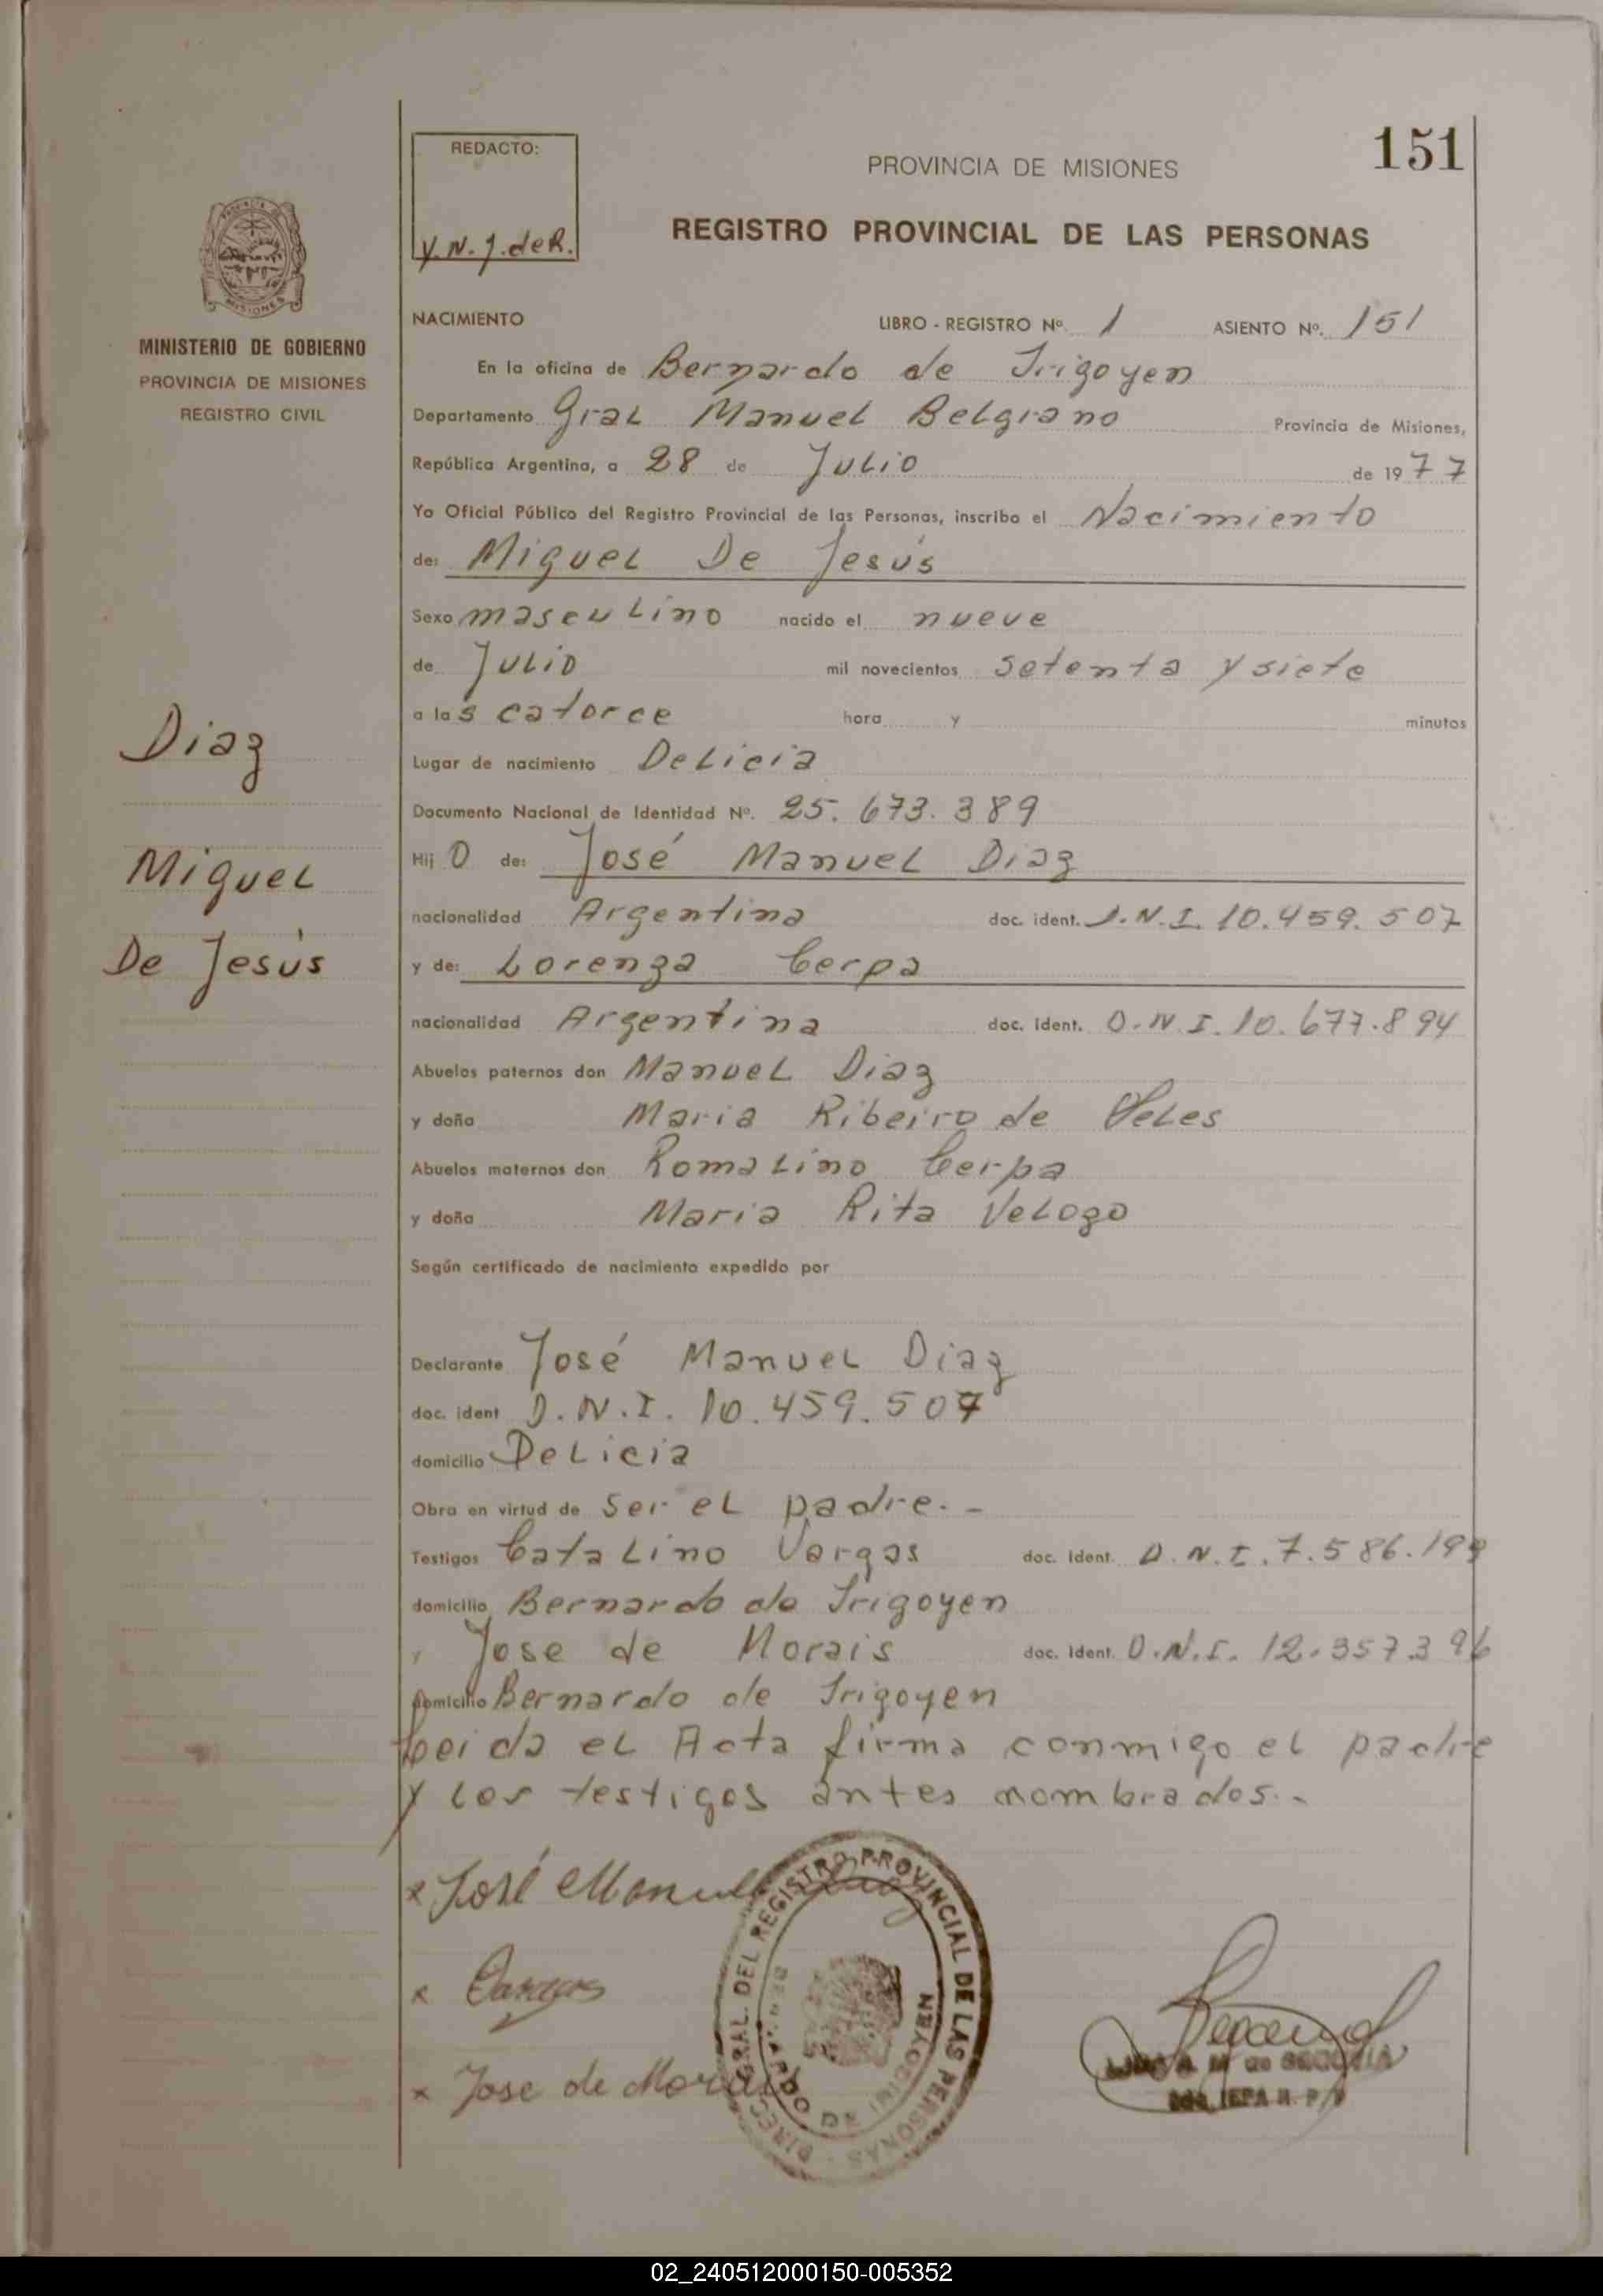 151
REDACTO:
Y.N.J.deR.
PROVINCIA DE MISIONES
REGISTRO PROVINCIAL DE LAS PERSONAS
PROVINCIA DE
MISIONES
MINISTERIO DE GOBIERNO
PROVINCIA DE MISIONES
REGISTRO CIVIL
Diaz
Miguel
De Jesús
NACIMIENTO LIBRO - REGISTRO Nº. 1 ASIENTO Nº. 151
En la oficina de Bernardo de Irigoyen
Departamento Gral Manuel Belgrano Provincia de Misiones,
República Argentina, a 28 de Julio de 1977
Yo Oficial Público del Registro Provincial de las Personas, inscribo el Nacimiento
de: Miguel De Jesús
Sexo masculino nacido el nueve
de Julio mil novecientos setenta y siete
a las catorce hora y minutos
Lugar de nacimiento Delicia
Documento Nacional de Identidad Nº. 25.673.389
Hij o de: José Manuel Diaz
nacionalidad Argentina doc. ident. D.N.I. 10.459.507
y de: Lorenza Cerpa
nacionalidad Argentina doc. ident. D.N.I. 10.677.894
Abuelos paternos don Manuel Diaz
y doña Maria Ribeiro de
Abuelos maternos don Romalino Cerpa
y doña Maria Rita Velozo
Según certificado de nacimiento expedido por
Declarante José Manuel Diaz
doc. ident D.N.I. 10.459.507
domicilio Delicia
Obra en virtud de ser el padre.-
Testigos Catalino Vargas doc. ident. D.N.I. 7.586.199
domicilio Bernardo de Irigoyen
y Jose de Morais doc. ident. D.N.I. 12.357.396
domicilio Bernardo de Irigoyen
Leida el Acta firma conmigo el padre
y los testigos antes nombrados.-
x José Manuel Diaz
x Vargas
x Jose de Morais
DIREC. GRAL. DEL REGISTRO PROVINCIAL DE LAS PERSONAS
BERNARDO DE IRIGOYEN
M. de SEGOVIA
JEFA R. P.
02_240512000150-005352